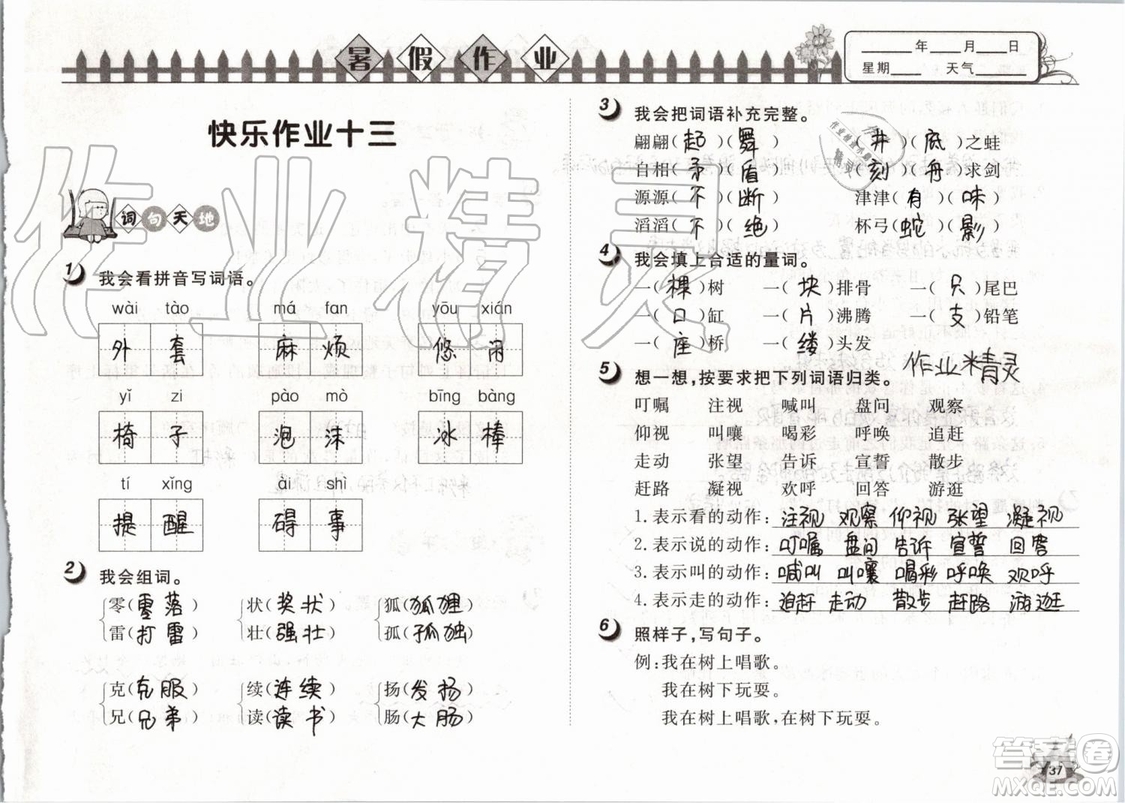 暑假作业
____年____月____日
星期____ 天气____
快乐作业十三
词句天地
1 我会看拼音写词语。
wài tào má fan yōu xián
外套 麻烦 悠闲
yǐ zi pào mò bīng bàng
椅子 泡沫 冰棒
tí xǐng ài shì
提醒 碍事
2 我会组词。
零(零落) 状(奖状) 狐(狐狸)
雷(打雷) 壮(强壮) 孤(孤独)
克(克服) 续(连续) 扬(发扬)
兄(兄弟) 读(读书) 肠(大肠)
3 我会把词语补充完整。
翩翩(起)(舞) (井)(底)之蛙
自相(矛)(盾) (刻)(舟)求剑
源源(不)(断) 津津(有)(味)
滔滔(不)(绝) 杯弓(蛇)(影)
4 我会填上合适的量词。
一(棵)树 一(块)排骨 一(只)尾巴
一(口)缸 一(片)沸腾 一(支)铅笔
一(座)桥 一(缕)头发
作业精灵
5 想一想,按要求把下列词语归类。
叮嘱 注视 喊叫 盘问 观察
仰视 叫嚷 喝彩 呼唤 追赶
走动 张望 告诉 宣誓 散步
赶路 凝视 欢呼 回答 游逛
1.表示看的动作:注视 观察 仰视 张望 凝视
2.表示说的动作:叮嘱 盘问 告诉 宣誓 回答
3.表示叫的动作:喊叫 叫嚷 喝彩 呼唤 欢呼
4.表示走的动作:追赶 走动 散步 赶路 游逛
6 照样子,写句子。
例:我在树上唱歌。
我在树下玩耍。
我在树上唱歌,在树下玩耍。
37
作业精灵
答案圈
MXQE.COM